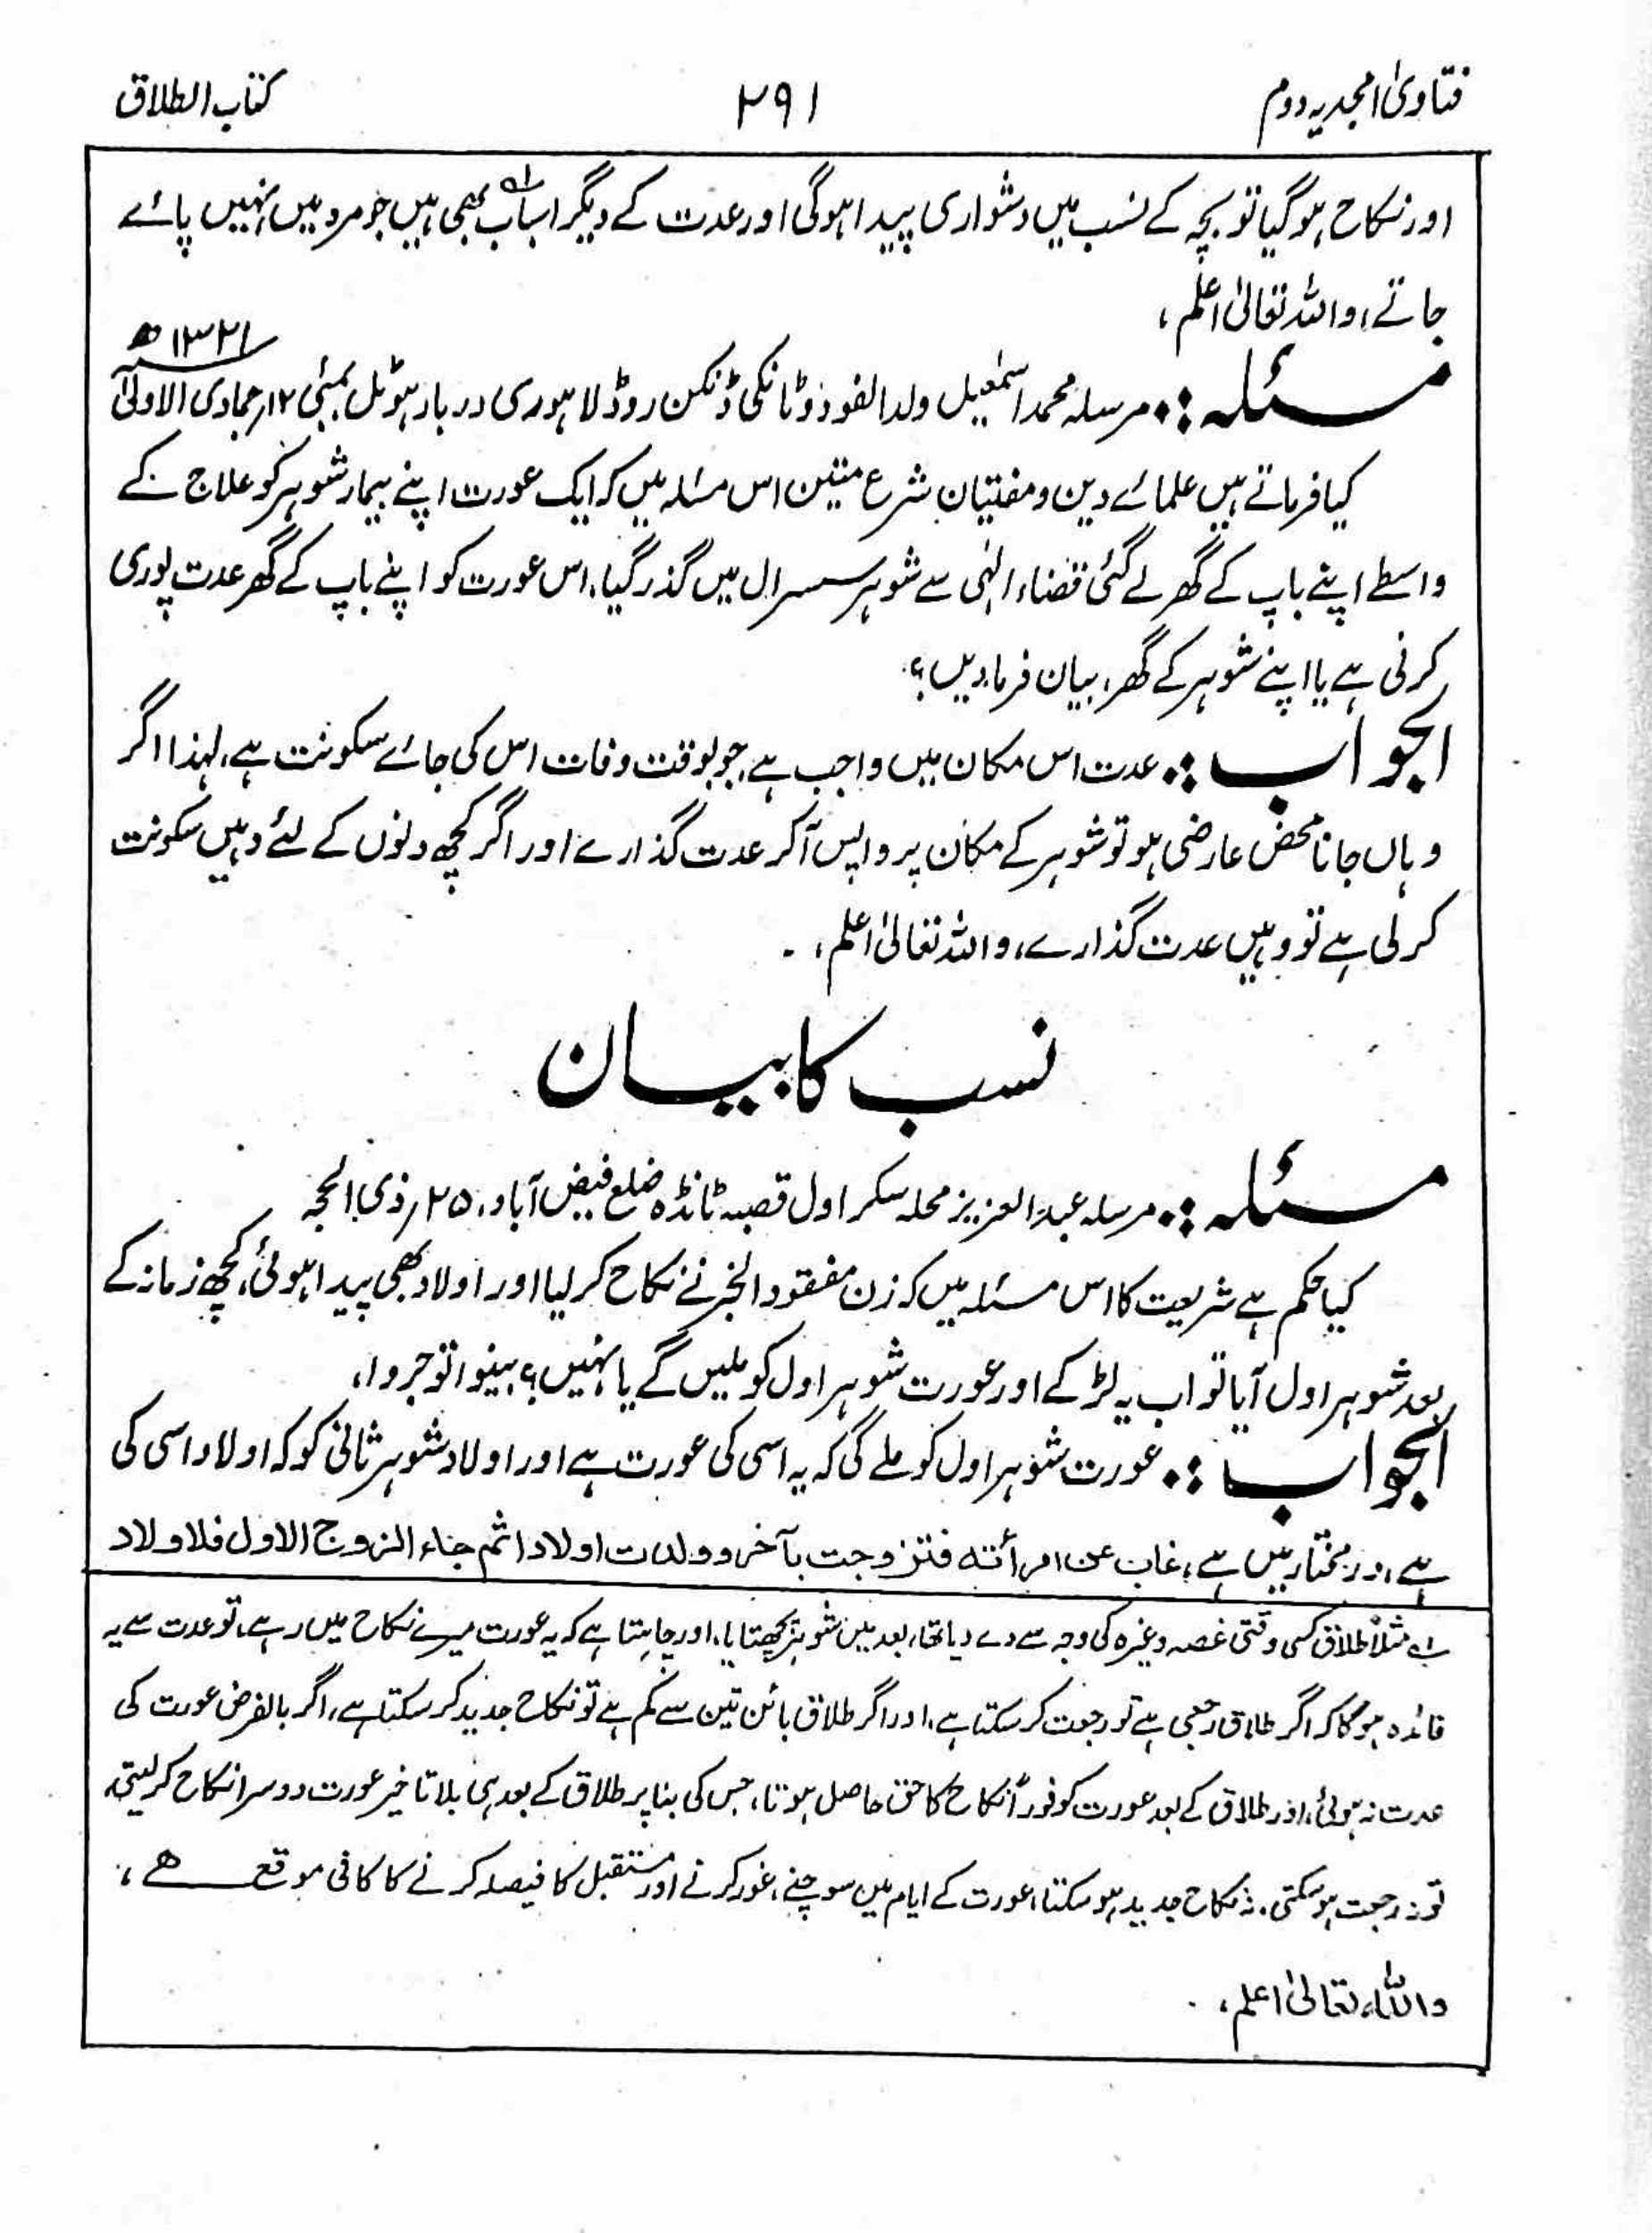 فتاویٰ امجدیہ دوم
۲۹۱
کتاب الطلاق
اور نکاح ہوگیا تو بچہ کے نسب میں دشواری پیدا ہوگی اور عدت کے دیگر اسباب لہ بھی ہیں جو مرد میں نہیں پائے
جاتے، واللہ تعالیٰ اعلم،
۱۳۲۱ھ
مسئلہ:۔ مرسلہ محمد اسمٰعیل ولد الفوذو ٹانکی ڈنکن روڈ لاہوری دربار ہوٹل بمبئی ۱۲؍جمادی الاولیٰ
کیا فرماتے ہیں علمائے دین و مفتیان شرع متین اس مسئلہ میں کہ ایک عورت اپنے بیمار شوہر کو علاج کے
واسطے اپنے باپ کے گھر لے گئی قضاء الٰہی سے شوہر سسرال میں گذر گیا، اس عورت کو اپنے باپ کے گھر عدت پوری
کرنی ہے یا اپنے شوہر کے گھر، بیان فرمادیں؟
الجواب:۔ عدت اس مکان میں واجب ہے جو بوقت وفات اس کی جائے سکونت ہے، لہذا اگر
وہاں جانا محض عارضی ہو تو شوہر کے مکان پر واپس آکر عدت گذارے اور اگر کچھ دنوں کے لئے وہیں سکونت
کرلی ہے تو وہیں عدت گذارے، واللہ تعالیٰ اعلم،۔
نسب کا بیان
مسئلہ:۔ مرسلہ عبدالعزیز محلہ سکراول قصبہ ٹانڈہ ضلع فیض آباد، ۲۵؍ذی الحجہ
کیا حکم ہے شریعت کا اس مسئلہ میں کہ زن مفقود الخبر نے نکاح کرلیا اور اولاد بھی پیدا ہوئی، کچھ زمانہ کے
بعد شوہر اول آیا تو اب یہ لڑکے اور عورت شوہر اول کو ملیں گے یا نہیں؟ بینوا توجروا،
الجواب:۔ عورت شوہر اول کو ملے گی کہ یہ اسی کی عورت ہے اور اولاد شوہر ثانی کو کہ اولاد اسی کی
ہے، درمختار میں ہے، غاب عن امرأته فتزوجت بآخر وولدت اولادا ثم جاء الزوج الاول فلاولاد
لہ مثلاً طلاق کسی وقتی غصہ وغیرہ کی وجہ سے دے دیا تھا، بعد میں شوہر پچھتایا، اور چاہتا ہے کہ یہ عورت میرے نکاح میں رہے، تو عدت سے یہ
فائدہ ہوگا کہ اگر طلاق رجعی ہے تو رجعت کرسکتا ہے، اور اگر طلاق بائن تین سے کم ہے تو نکاح جدید کرسکتا ہے، اگر بالفرض عورت کی
عدت نہ ہوئی، اور طلاق کے بعد عورت کو فوراً نکاح کا حق حاصل ہوتا، جس کی بنا پر طلاق کے بعد ہی بلا تاخیر عورت دوسرا نکاح کرلیتی،
تو نہ رجعت ہوسکتی، نہ نکاح جدید ہوسکتا، عورت کے ایام میں سوچنے، غور کرنے اور مستقبل کا فیصلہ کرنے کا کافی موقع ہے،
واللہ تعالیٰ اعلم،